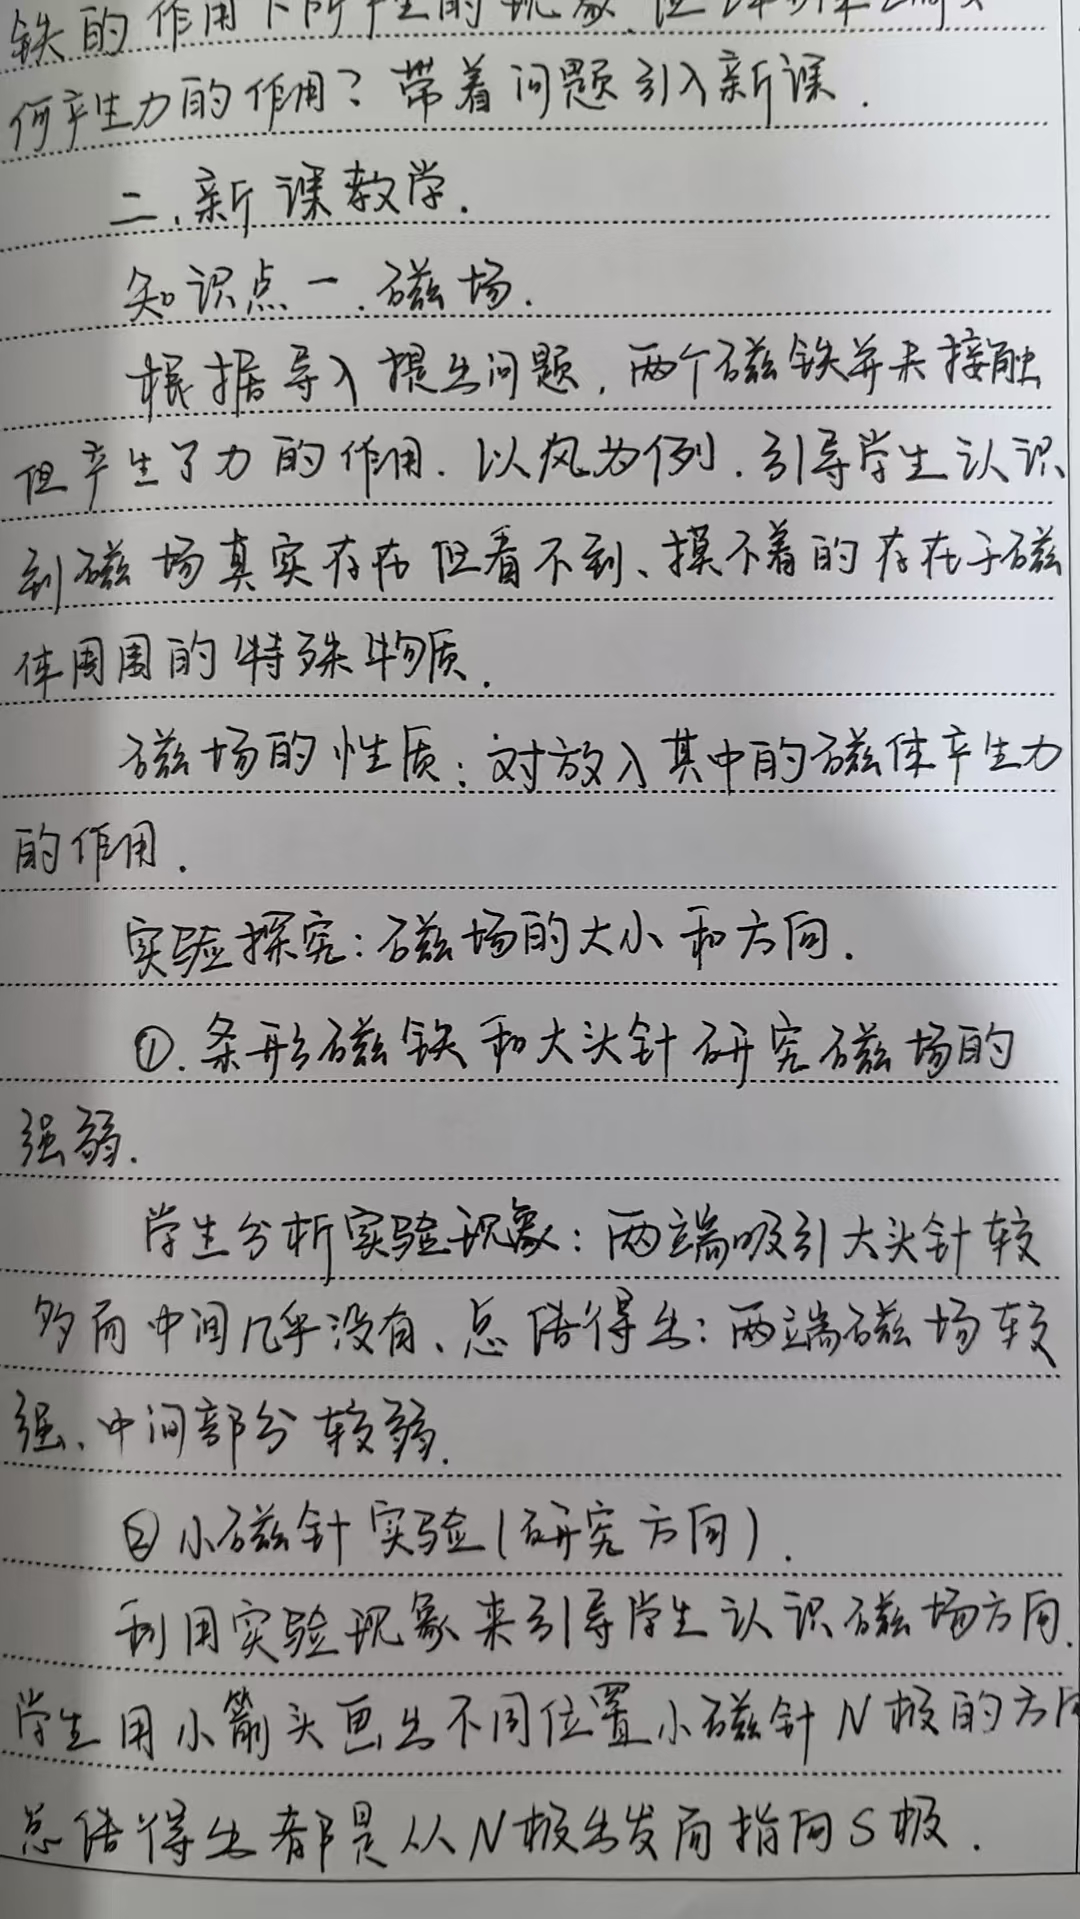 铁的作用下所产生的现象.但
何产生力的作用？带着问题引入新课.
二、新课教学.
知识点一、磁场.
根据导入提出问题,两个磁铁并未接触
但产生了力的作用.以风为例.引导学生认识
到磁场真实存在但看不到、摸不着的存在于磁
体周围的特殊物质.
磁场的性质:对放入其中的磁体产生力
的作用.
实验探究:磁场的大小和方向.
①.条形磁铁和大头针研究磁场的
强弱.
学生分析实验现象:两端吸引大头针较
多而中间几乎没有、总结得出:两端磁场较
强、中间部分较弱.
②小磁针实验(研究方向).
利用实验现象来引导学生认识磁场方向.
学生用小箭头画出不同位置小磁针N极的方向
总结得出都是从N极出发而指向S极.